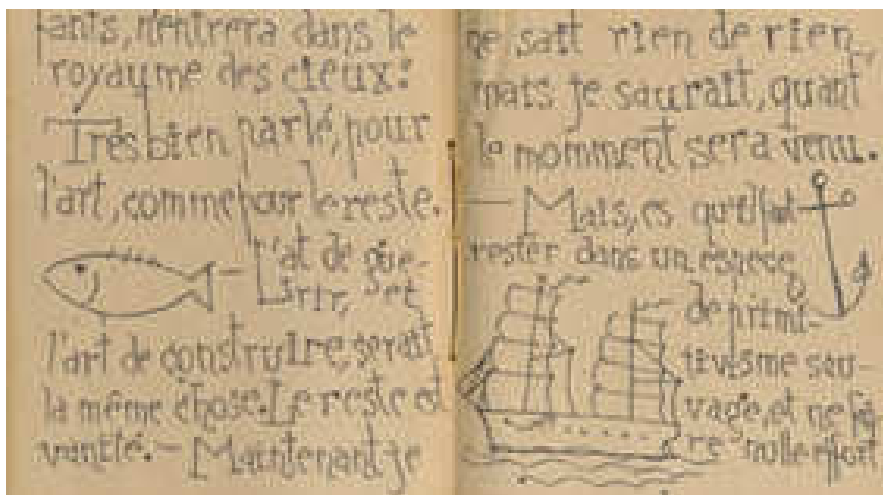 fants, n'entrera dans le
royaume des cieux:
Très bien parlé, pour
l'art, comme pour le reste.
— L'at de gue-
rir, et
l'art de construire, serait
la même chose. Le reste et
vanité. — Maintenant je
ne sait rien de rien,
mais je saurait, quant
le momment sera venu.
— Mais, es qu'il faut
rester dans un espece
de primi-
tivisme sau-
vage, et ne fai
re nulle effort